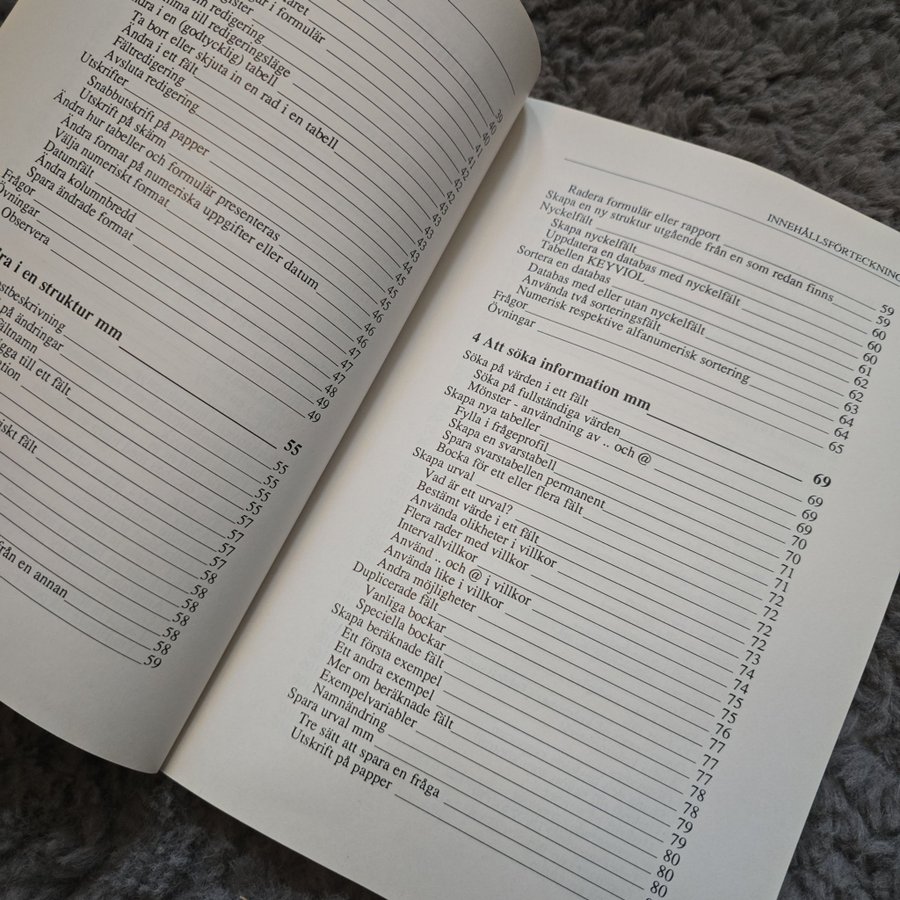 formulär
redigering
till redigeringsläge
i en (godtycklig) tabell
Ta bort eller skjuta in en rad i en tabell
Ändra i ett fält
Fältredigering
Avsluta redigering
Utskrifter
Snabbutskrift på papper
Utskrift på skärm
Ändra hur tabeller och formulär presenteras
Ändra format på numeriska uppgifter el/er datum
Välja numeriskt format
Datumfält
Ändra kolumnbredd
Spara ändrade format
Frågor
Övningar
Observera
39
40
40
41
41
42
42
42
43
43
43
43
44
45
45
45
46
46
46
47
47
47
48
49
49
i en struktur mm 55
på ändringar
till ett fält
fält
från en annan
55
55
55
55
57
57
57
58
58
58
58
58
59
INNEHÅLLSFÖRTECKNING
Radera formulär eller rapport 59
Skapa en ny struktur utgående från en som redan finns 59
Nyckelfält 60
Skapa nyckelfält 60
Uppdatera en databas med nyckelfält 60
Tabellen KEYVIOL 61
Sortera en databas 62
Databas med eller utan nyckelfält 62
Använda två sorteringsfält 63
Numerisk respektive alfanumerisk sortering 64
Frågor 64
Övningar 65
4 Att söka information mm 69
Söka på värden i ett fält 69
Söka på fullständiga värden 69
Mönster - användning av .. och @ 69
Skapa nya tabeller 70
Fylla i frågeprofil 70
Skapa en svarstabell 71
Spara svarstabellen permanent 71
Bocka för ett eller flera fält 72
Skapa urval 72
Vad är ett urval? 72
Bestämt värde i ett fält 72
Använda olikheter i villkor 73
Flera rader med villkor 74
Intervallvillkor 74
Använd .. och @ i villkor 75
Använda like i villkor 75
Andra möjligheter 76
Duplicerade fält 77
Vanliga bockar 77
Speciella bockar 77
Skapa beräknade fält 78
Ett första exempel 78
Ett andra exempel 79
Mer om beräknade fält 79
Exempelvariabler 80
Namnändring 80
Spara urval mm 80
Tre sätt att spara en fråga
Utskrift på papper